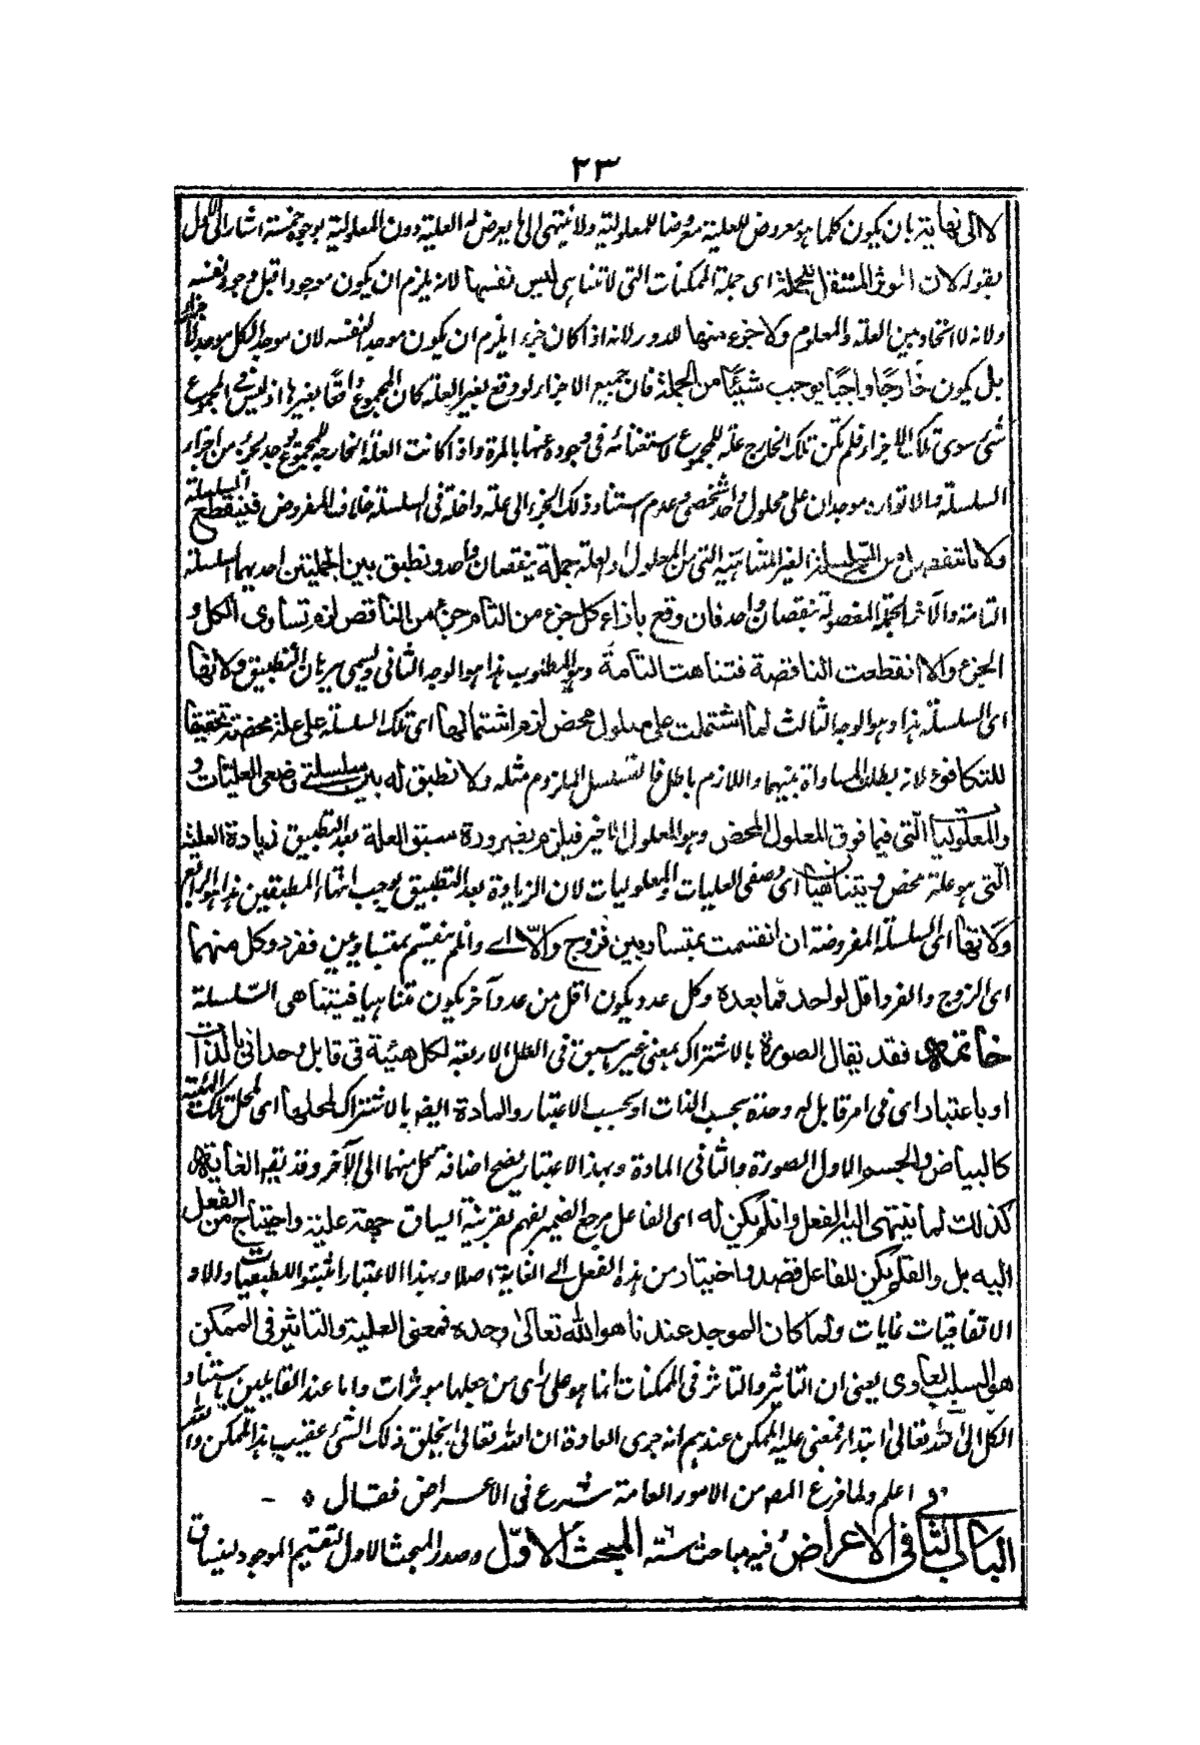 ٢٣
لا الى نهاية بان يكون كلما هو معروض للعلية معروضا للمعلولية ولا ينتهى الى ما يعرض له العلية دون المعلولية بوجوه خمسة اشار الى الاول
بقوله لان الموثر المستقل للجملة اى جملة الممكنات التى لا تتناهى ليس نفسها لانه يلزم ان يكون موجودا قبل وجود نفسه
ولانه لا اتحاد بين العلة والمعلوم ولا جزء منها للدور لانه اذا كان جزء ايلزم ان يكون موجد النفسه لان موجد الكل موجد لاجزائه
بل يكون خارجًا واجبًا يوجب شيئًا من الجملة فان جميع الاجزاء لو وقع بغير العلة كان المجموع واقعًا بغيرها اذ ليس فى المجموع
شئ سوى تلك الاجزاء فلم تكن تلك الخارج علة للمجموع لاستغنائه فى وجوده عنها بالمرة واذا كانت العلة الخارجة للمجموع يوجد بجزء من اجزاء
السلسلة والا توارد موجدان على محلول واحد شخصى وعدم استناد ذلك الجزء الى علة داخلة فى السلسلة خلاف المفروض فينقطع السلسلة
ولانا نفصل من السلسلة الغير المتناهية التى من المعلول والعلة جملة ينقصان واحد ونطبق بين الجملتين احديهما السلسلة
التامة والآخر الجملة المفصولة بنقصان واحد فان وقع بازاء كل جزء من التام جزء من الناقص لزم تساوى الكل و
الجزء والا انقطعت الناقصة فتناهت التامة وهو المطلوب هذا هو الوجه الثانى ويسمى برهان التطبيق ولانها
اى السلسلة هذا وهو الوجه الثالث لما اشتملت على معلول محض لزم اشتمالها اى تلك السلسلة على علة محضة تحقيقا
للتكافوء لانه بطلت المساواة بينهما واللازم باطل فالتسلسل الملزوم مثله ولا نطبق له بين سلسلتى وضعى العليات و
والمعلوليا التى فيما فوق المعلول المحض وهو المعلول الاخير فيلزم بضرورة سبق العلة بعد التطبيق زيادة العلة
التى هو علة محض ويتناهيا اى وصفى العليات والمعلوليات لان الزيادة بعد التطبيق يوجب انتهاء المطبقين هذا هو الرابع
ولانها اى السلسلة المفروضة ان انقسمت بمتساويين فزوج والا اے وان لم ينقسم بمتساويين ففرد وكل منهما
اى الزوج والفرد اقل لواحد مما بعده وكل عدد يكون اقل من عدد آخر يكون متناهيا فيتناهى السلسلة
خاتمة فقد يقال الصورة بالاشتراك بمعنى غير ما سبق فى العلل الاربعة لكل هيئة فى قابل وحدانى بالذات
او باعتبار اى فى امر قابل له وحدة بحسب الذات او بحسب الاعتبار والمادة ايضه بالاشتراك لمحلها اى لمحل تلك الهيئة
كالبياض والجسم الاول الصورة والثانى المادة وبهذا الاعتبار يصح اضافة كل منهما الى الآخر وقد يقه الغاية
كذلك لما ينتهى اليه الفعل وان لم يكن له اى الفاعل مرجع الضمير يفهم بقرينة السياق جهة علية واحتياج من الفعل
اليه بل وان لم يكن للفاعل قصد واختيار من هذه الفعل الے الغاية اصلا وبهذا الاعتبار اثبتوا للطبعيات والا
الاتفاقيات غايات ولما كان الموجد عندنا هو الله تعالىٰ وحده فمعنى العلية والتاثير فى الممكن
هو السبب العادى يعنى ان التاثير والتاثر فى الممكنات انما هو على راى من جعلها موثرات واما عند القايلين باستناد
الكل الى الله تعالى ابتداء فمعنى علية الممكن عندهم انه جرى العادة ان الله تعالى يخلق ذلك الشئ عقيب هذا الممكن والله
اعلم ولما فرغ المصه من الامور العامة شرع فى الأعراض فقال
الباب الثانى فى الاعراض وفيه مباحث ستة المبحث الاول وصدر المبحث الاول لتقسيم الموجود لينساق